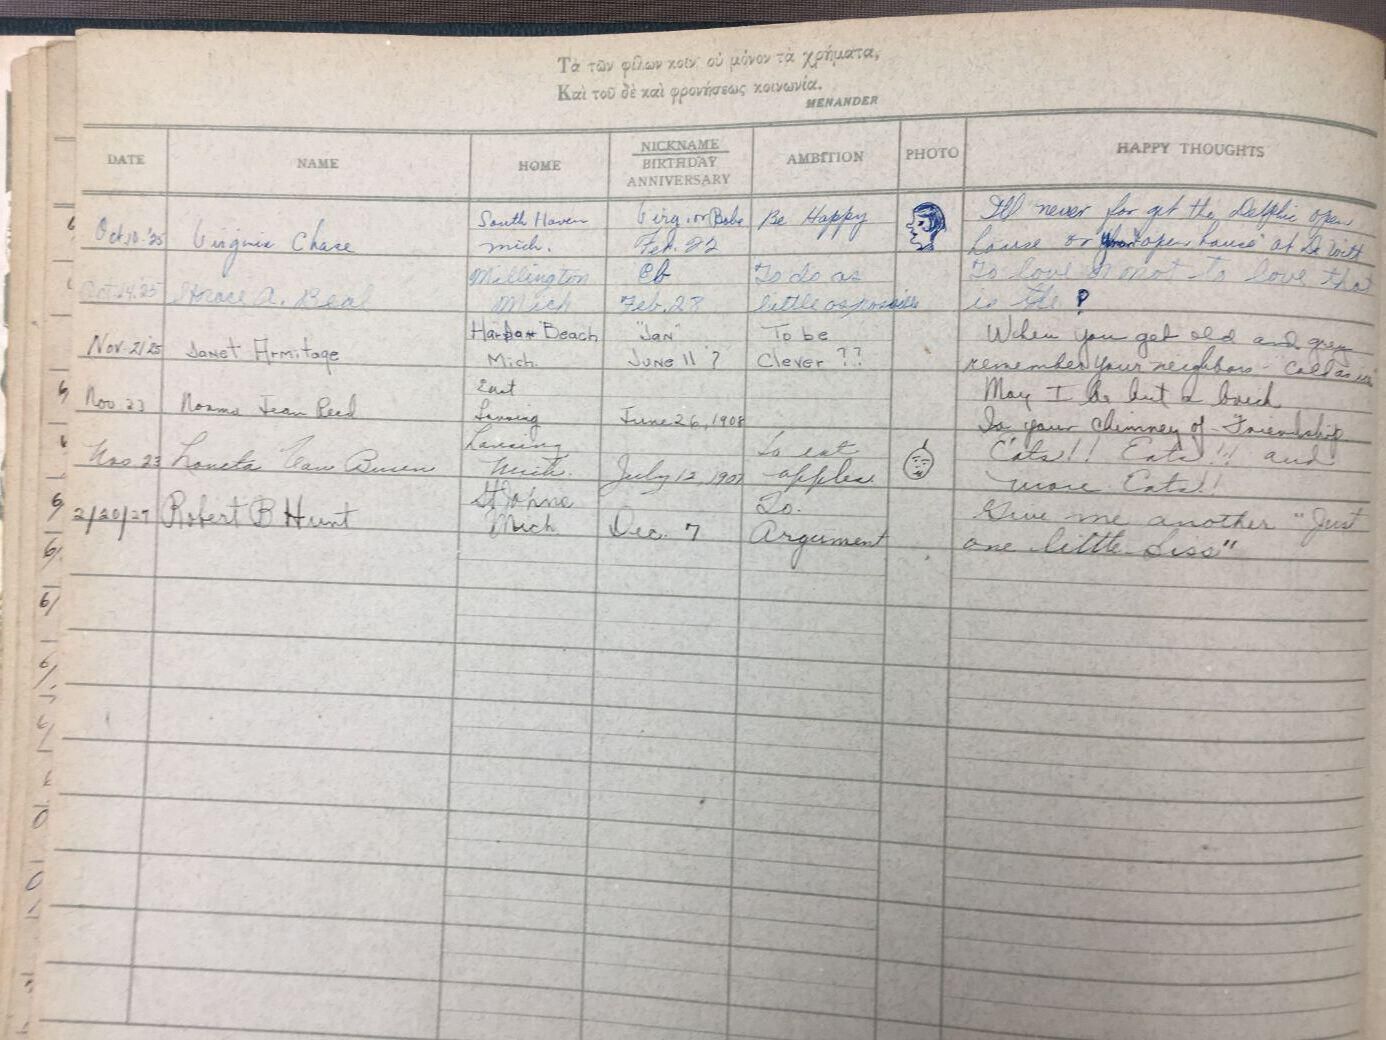 Τὰ τῶν φίλων κοίν' οὐ μόνον τὰ χρήματα,
Καὶ τοῦ δὲ καὶ φρονήσεως κοινωνία.
MENANDER
DATE NAME HOME NICKNAME BIRTHDAY ANNIVERSARY AMBITION PHOTO HAPPY THOUGHTS
South Haven Virg. or Bobe Be Happy I'll never for get the Delphic open
Oct. 10-'25 Virginia Chase Mich. Feb. 22 house or open house at De Witt
Millington To do as To love or not to love that
Oct. 24. 25 Horace A. Beal Mich Feb. 28 little as possible is the ?
Harbor Beach "Jan" To be When you get old and grey
Nov-21/25 Janet Armitage Mich. June 11 ? Clever ?? remember your neighbors -
East May I be but a brick
Nov. 23 Norma Jean Reed Lansing June 26, 1908 In your chimney of Friendship
Lansing To eat Eats!! Eats!! and
Nov 23 Loneta Van Buren Mich. July 12, 1907 apples. more Eats!!
St Johns To. Give me another "Just
2/20/27 Robert B Hunt Mich. Dec. 7 Argument one little kiss"